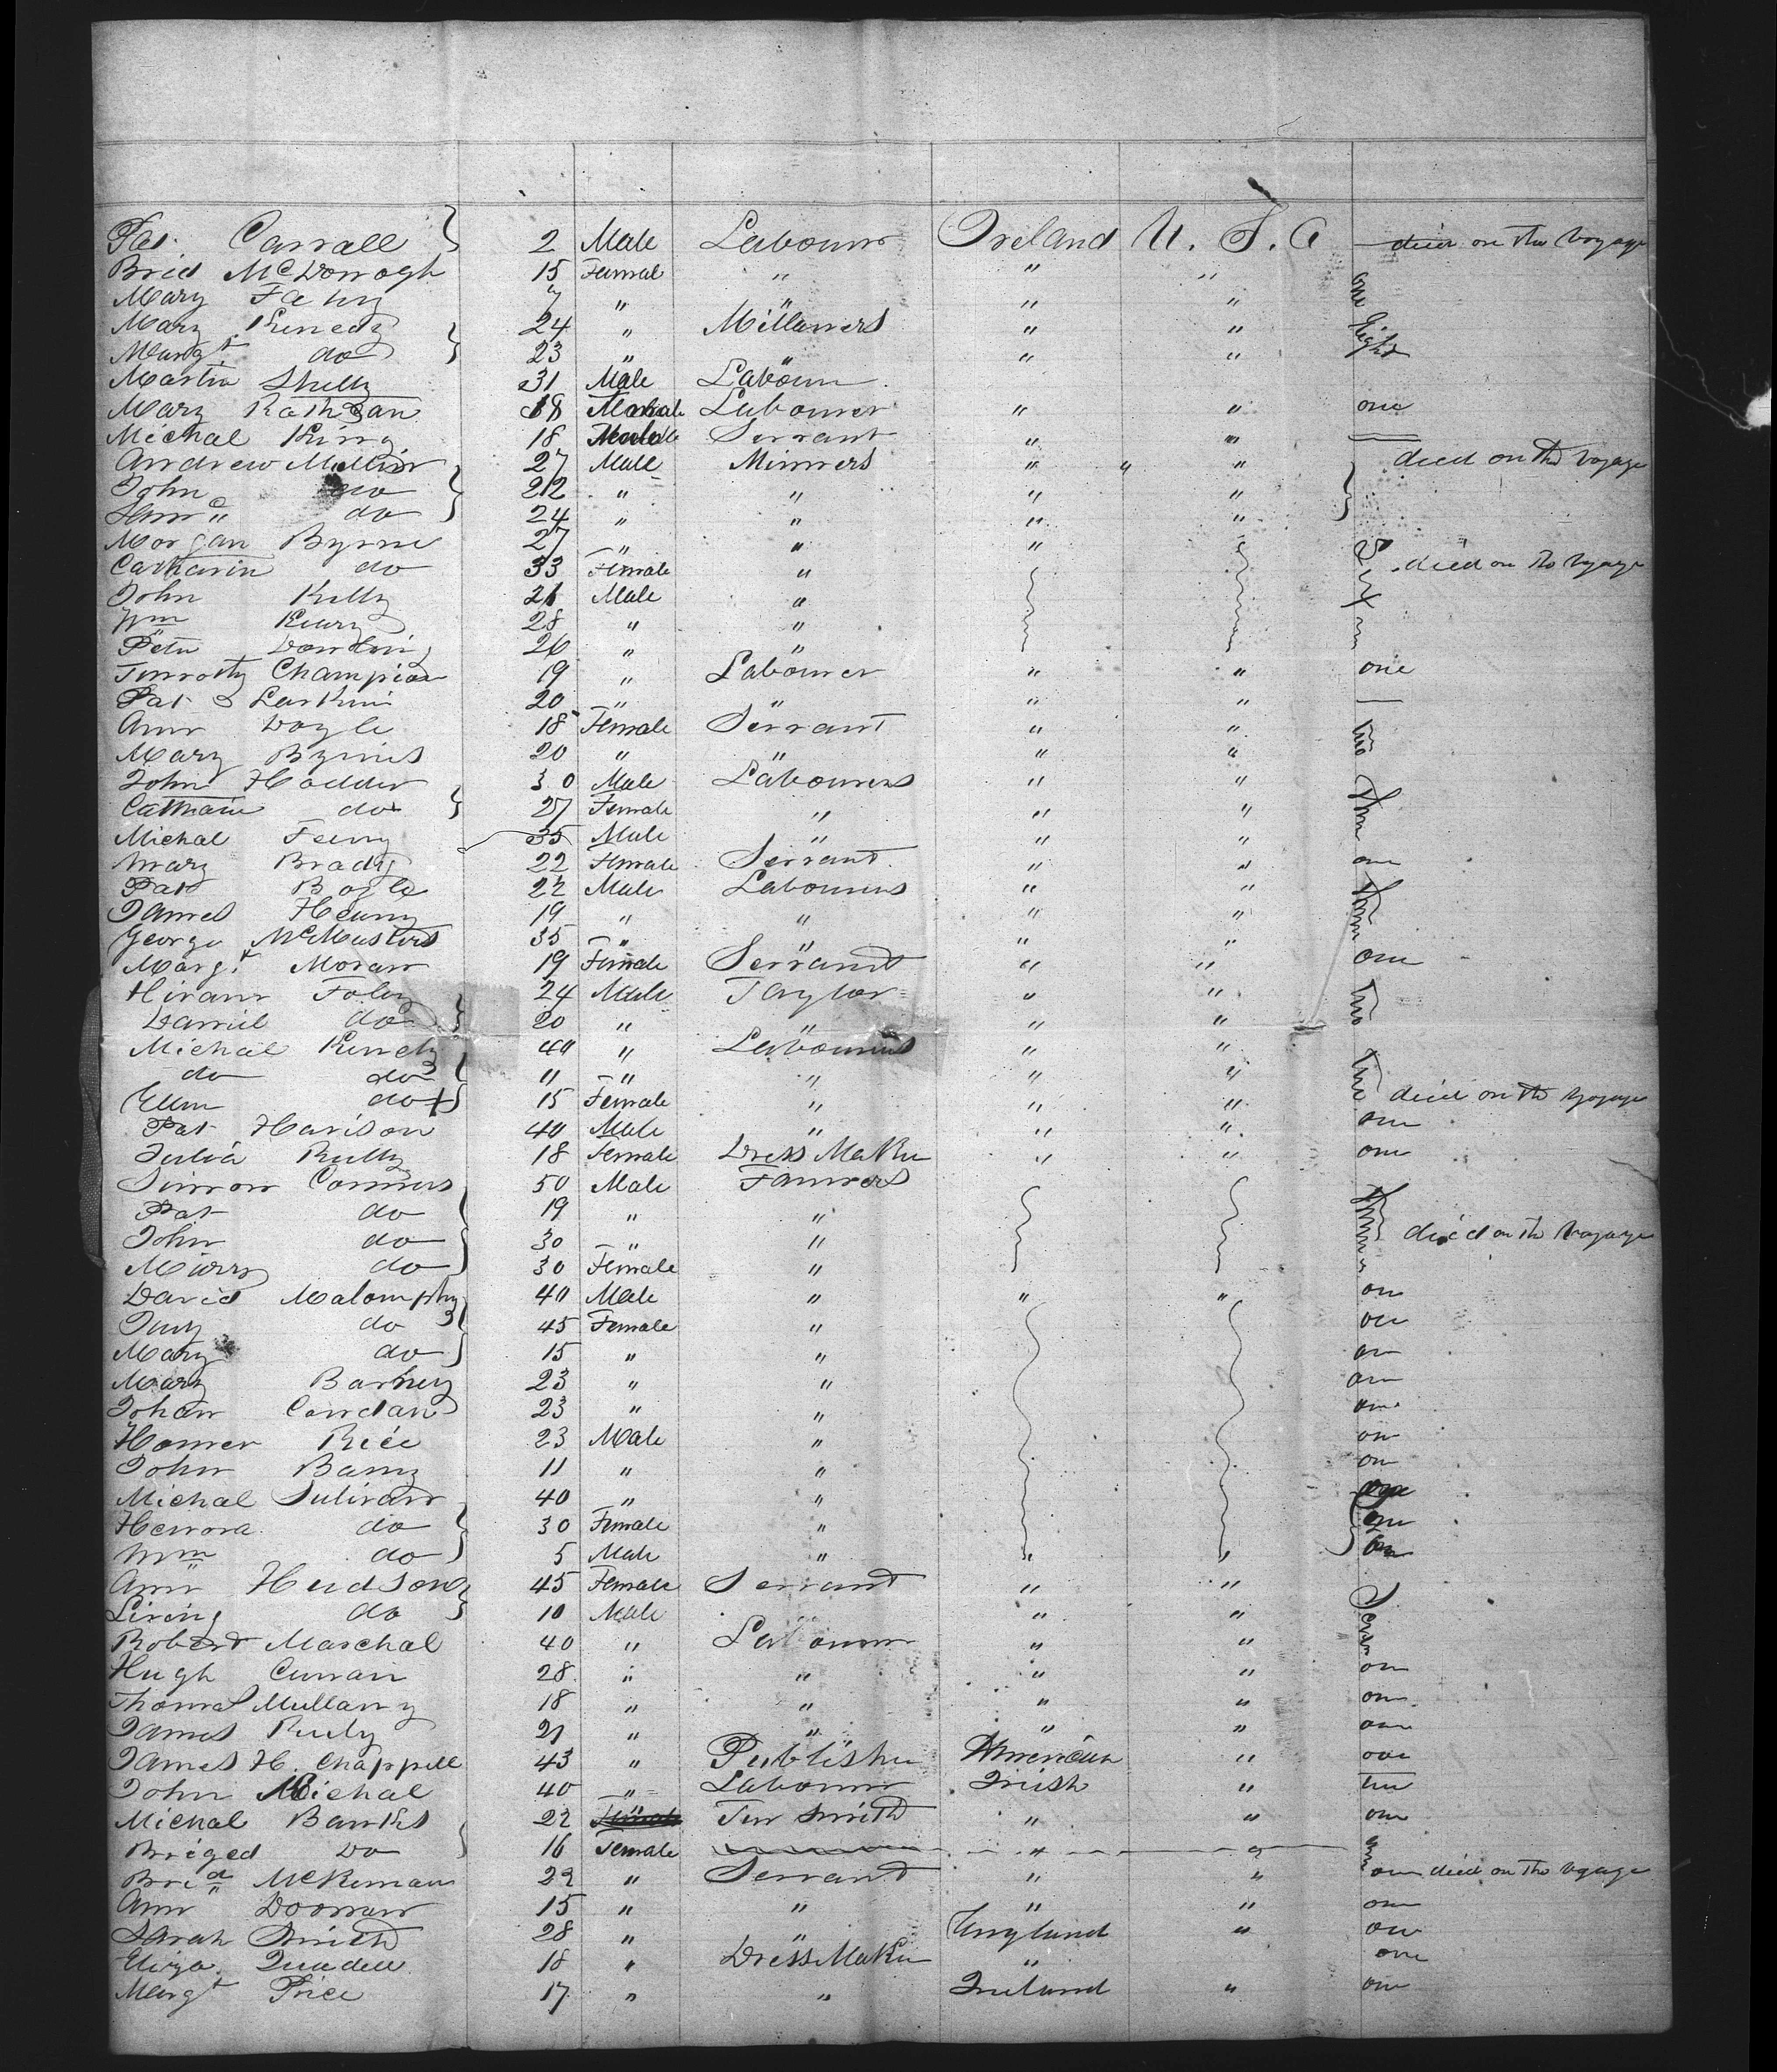 Pat. Carrall } 2 Male Labourer Ireland U. S. A — died on the Voyage
Brid McDonogh 15 Femal " " "
Mary Fahy 7 " " " " one
Mary Kenedy } 24 " Millaners " " Eight
Margt do } 23 " " " "
Martin Shelly 31 Male Labourer
Mary 18 Labourer " " one
Michal King 18 Servant " " —
Andrew Mullin 27 Male Minners " " " died on the Voyage
John do } 22 " " " "
do } 24 " " " "
Morgan Byrne 27 " " "
Catharin do 33 Female " Six died on the Voyage
John Kelly 21 Male "
Wm 28 " "
Peter Dowling 26 " "
Timothy Champion 19 " Labourer " " one
Pat Larkin 20 " " " " —
Ann Doyle 18 Female Servant " " two
Mary Byrnes 20 " " " "
John Hodder } 30 Male Labourers " "
Catharin do } 27 Female " " "
Michal Feeny 35 Male " " "
Mary Brady 22 Female Servant " " one
Pat Bogle 22 Male Labourers " "
James Heurny 19 " " " "
George McMasters 35 " " " "
Margt Moran 19 Female Servant " " one
Hiram Foley } 24 Male Taylor " " two
Daniel do } 20 " " " "
Michal Kenedy } " Labourers " "
do do } 11 " " " "
Ellen do + } 15 Female " " " died on the Voyage
Pat Harison 40 Male " " " one
Julia Kelly 18 Female Dress Maker " " one
Simon Connors } 50 Male Farmers
Pat do } 19 " "
John do } 30 " " died on the Voyage
do } 30 Female "
David Malomphy } 40 Male " " " one
do } 45 Female " one
Mary do } 15 " " one
Mary Barkey 23 " " one
Johan Condan 23 " " one
Homer Rice 23 Male " one
John Barry 11 " " one
Michal Sulivan } 40 " " one
Honora do } 30 Female " one
Wm do } 5 Male " " "
Ann Hudson } 45 Female Servant " "
do } 10 Male " "
Robert Marchal 40 " Labourer " "
Hugh Curran 28 " " " " one
Thomas Mullany 18 " " " " one
James 21 " " " " one
James H. Chappell 43 " Publisher American " one
John Michal 40 " Labourer Irish "
Michal Banks } 22 Tin Smith " " one
Briged Do } 16 Female " "
Brid McKernan 22 " Servant " " one died on the Voyage
Ann Doonan 15 " " " " one
Sarah Smith 28 " " England " one
Eliza 18 " Dress Maker " one
Margt Price 17 " " Ireland " one